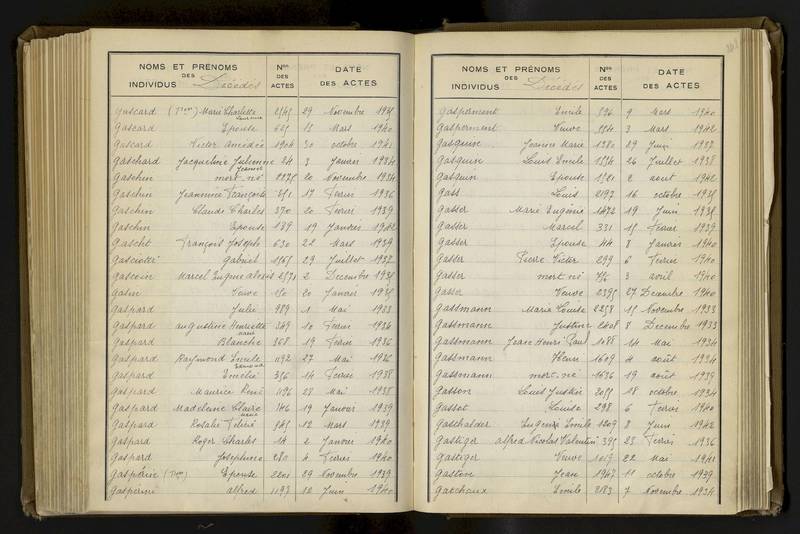 NOMS ET PRÉNOMS
DES
INDIVIDUS Décédés
Nos
DES
ACTES
DATE
DES ACTES
Gascard Marie Charlotte 29 Novembre
Gascard Epouse 625 15 Mars 1940
Gascard Victor Amédée 1904 30 octobre 1941
Gaschard Jacqueline Julienne 24 3 Janvier 1934
Jeanne
Gaschin mort-né 20 Novembre 1934
Gaschin Jeannine Françoise 17 Février 1936
Gaschin Claude Charles 370 20 Février 1939
Gaschin Epouse 139 19 Janvier 1942
Gaschet François Joseph 630 22 Mars 1939
Gabriel 29 Juillet 1937
Gascoin Marcel Eugène Alexis 2 Décembre
Gasm Veuve 20 Janvier
Gaspard Julie 989 1 Mai 1933
Gaspard Augustine Henriette 349 10 Février 1936
Gaspard Blanche 368 19 Février 1936
Gaspard Raymond Emile 1192 27 Mai 1936
Gaspard Emélie 356 14 Février 1938
Gaspard Maurice René 1196 28 Mai 1938
Gaspard Madeleine Claire 146 19 Janvier 1939
Gaspard Rosalie 12 Mars 1939
Gaspard Roger Charles 14 2 Janvier 1940
Gaspard Joséphine 280 4 Février 1940
Epouse 2201 29 Novembre 1939
Gasperini Alfred 1197 12 Juin 1940
NOMS ET PRÉNOMS
DES
INDIVIDUS Décédés
Nos
DES
ACTES
DATE
DES ACTES
Gasperment Emile 596 9 Mars 1940
Gasperment Veuve 554 3 Mars 1942
Gasquin Jeanne Marie 1380 29 Juin 1937
Gasquin Louis Emile 26 Juillet 1938
Gasquin Epouse 2 août 1942
Gass Louis 2197 16 octobre
Gasser Marie Eugénie 1472 19 Juin
Gasser Marcel 331 15 Février 1939
Gasser Epouse 44 8 Janvier 1940
Gasser Pierre Victor 299 6 Février 1940
Gasser mort-né 3 avril 1940
Gasser Veuve 2395 27 Décembre 1940
Gassmann Marie Louise 2258 15 Novembre 1933
Gassmann Justine 2408 8 Décembre 1933
Gassmann Jean Henri Paul 1088 14 Mai 1934
Gassmann Henri 1609 4 août 1934
Gassmann mort-né 1636 19 août 1939
Gasson Louis Justin 18 octobre 1934
Gassot Louise 298 6 Février 1940
Gastbalder Eugénie Emile 1209 8 Juin 1942
Gastiger Alfred Nicolas Valentin 395 23 Février 1936
Gastiger Veuve 22 Mai 1941
Gaston Jean 1947 11 octobre 1939
Emile 2183 7 Novembre 1934